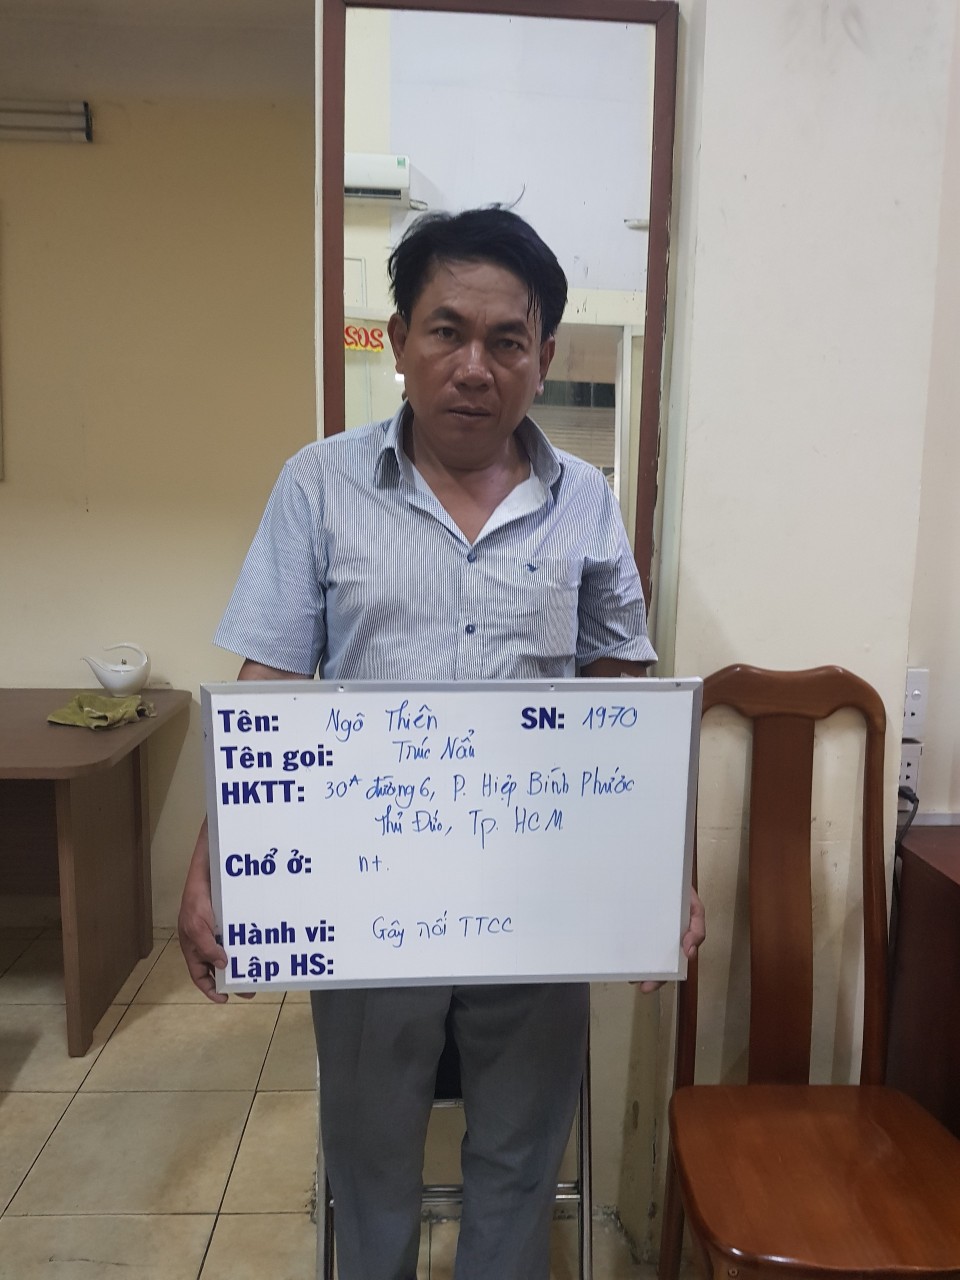 Tên: Ngô Thiên SN: 1970
Tên gọi: Trúc Nẩu
HKTT: 30A đường 6, P. Hiệp Bình Phước
Thủ Đức, Tp. HCM
Chổ ở: nt.
Hành vi: Gây rối TTCC
Lập HS: